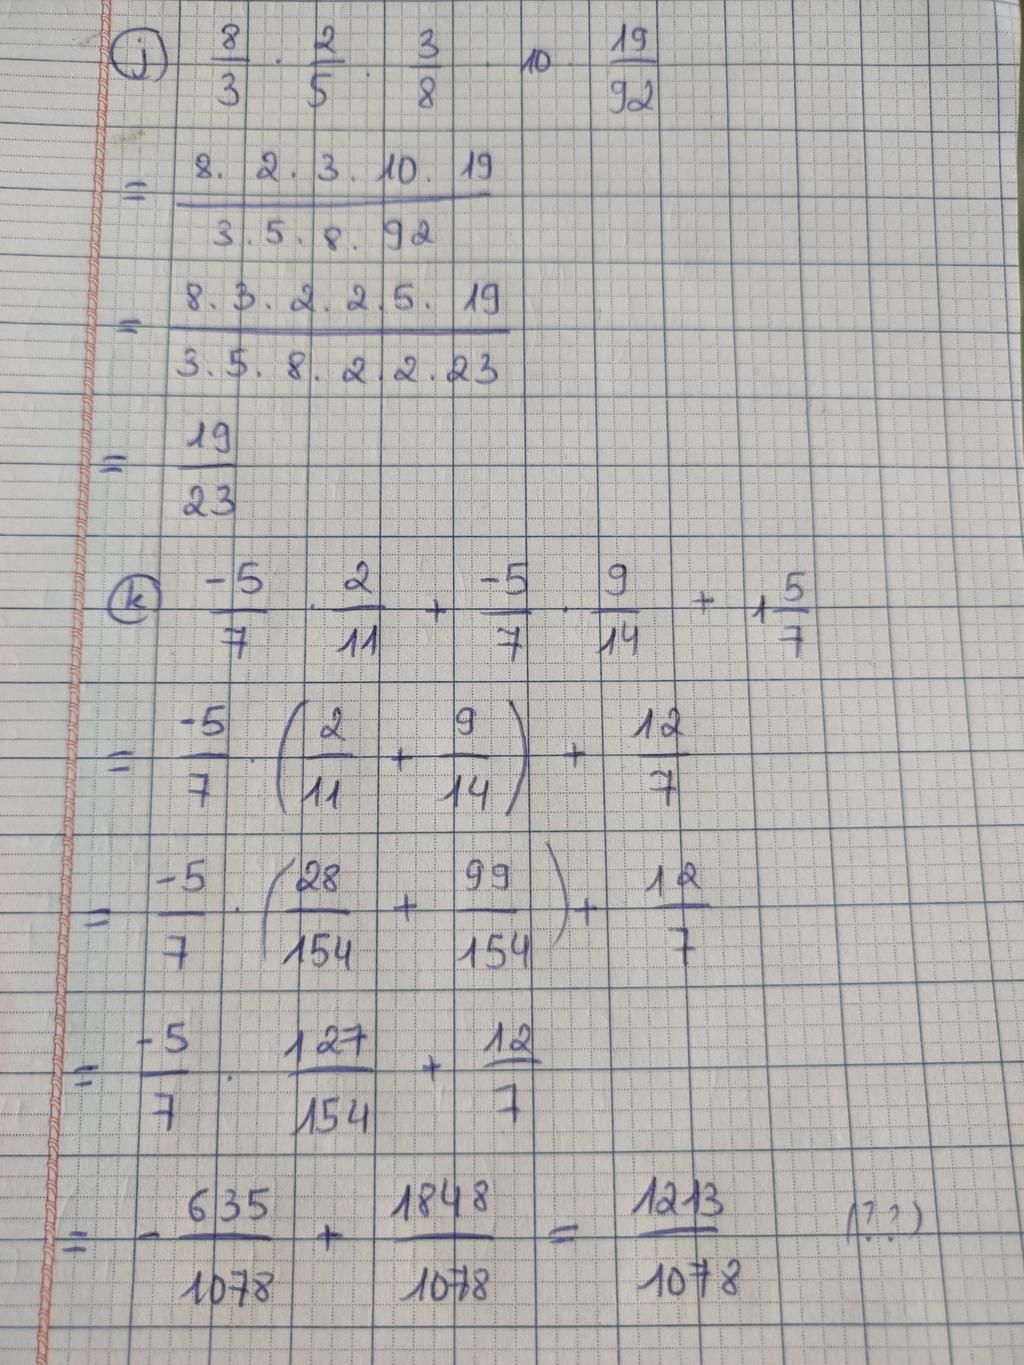 j) 8/3 . 2/5 . 3/8 . 10 . 19/92
= 8. 2. 3. 10. 19 / 3. 5. 8. 92
= 8. 3. 2. 2. 5. 19 / 3. 5. 8. 2. 2. 23
= 19/23
k) -5/7 . 2/11 + -5/7 . 9/14 + 1 5/7
= -5/7 . (2/11 + 9/14) + 12/7
= -5/7 . (28/154 + 99/154) + 12/7
= -5/7 . 127/154 + 12/7
= - 635/1078 + 1848/1078 = 1213/1078 (??)